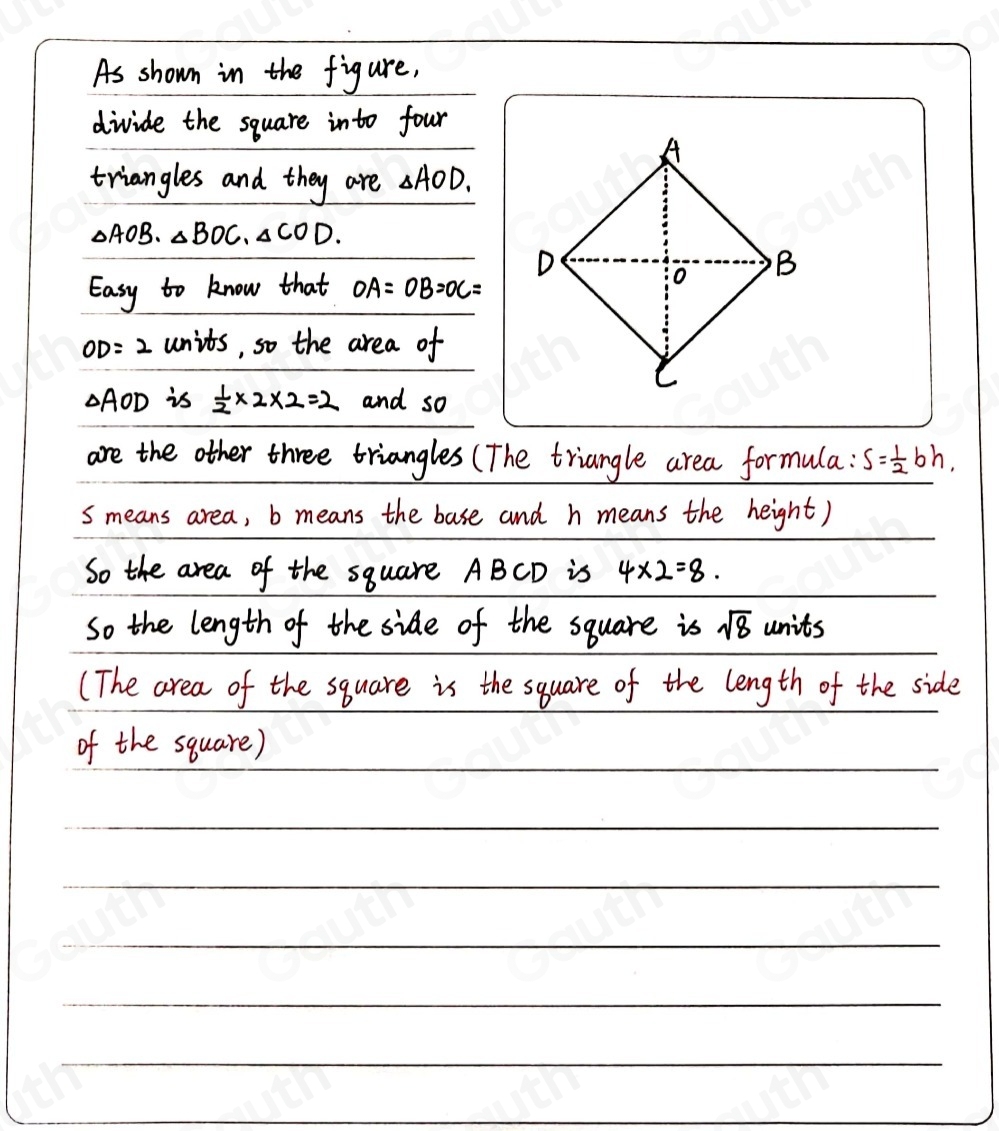 As shown in the figure,
divide the square into four
triangles and they are △AOD,
△AOB、△BOC、△COD.
Easy to know that OA= OB=OC=
OD= 2 units, so the area of
△AOD is 1/2×2×2=2 and so
are the other three triangles (The triangle area formula: S=1/2bh,
S means area, b means the base and h means the height)
So the area of the square ABCD is 4×2=8.
So the length of the side of the square is √8 units
(The area of the square is the square of the length of the side
of the square)
A
D
O
B
C
Gauth